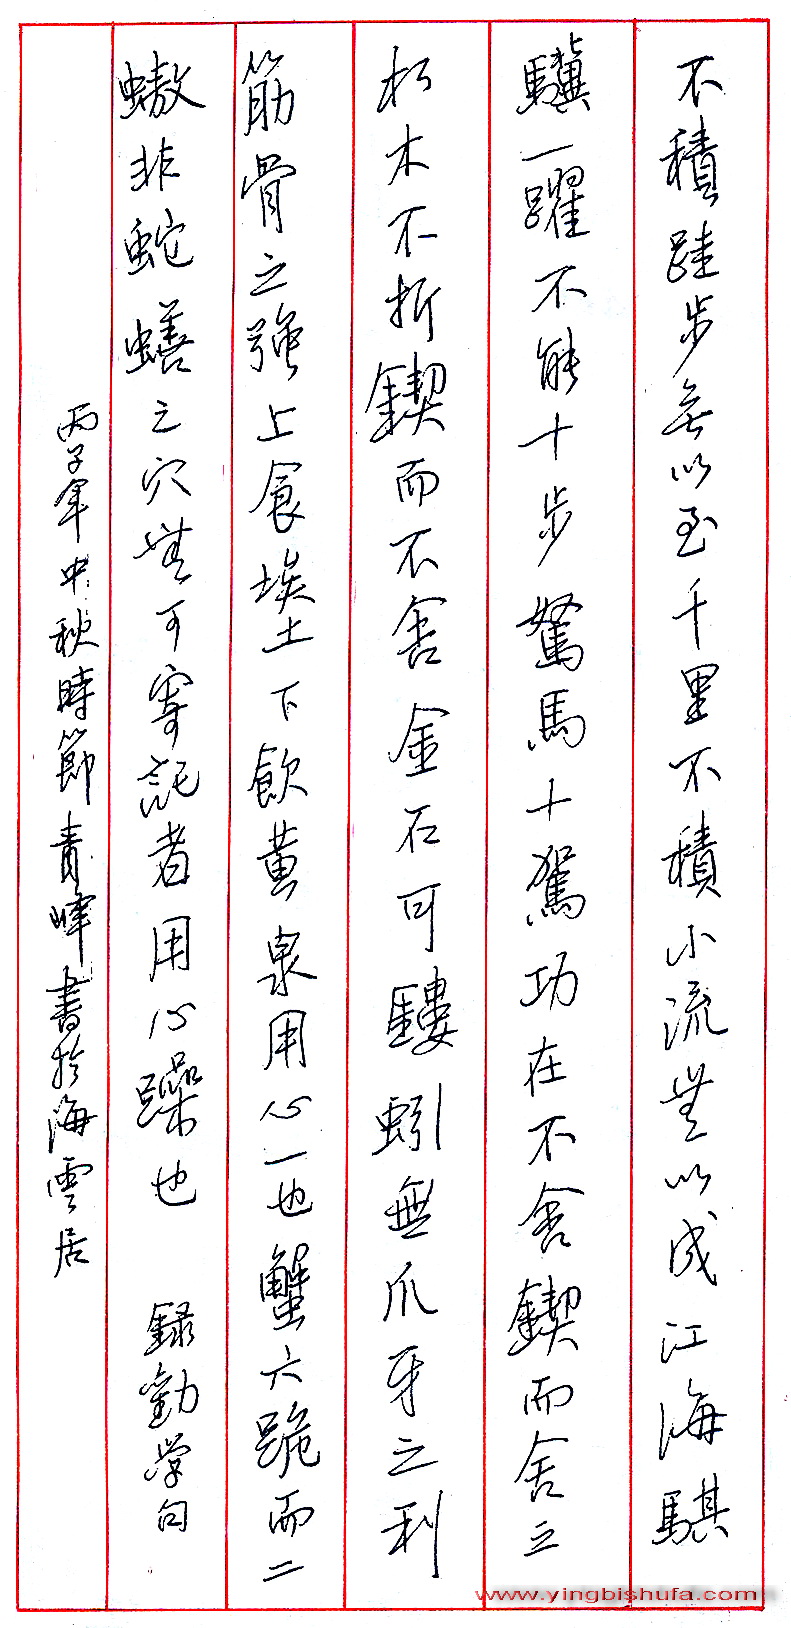 不積跬步無以至千里不積小流無以成江海騏
驥一躍不能十步駑馬十駕功在不舍鍥而舍之
朽木不折鍥而不舍金石可鏤蚓無爪牙之利
筋骨之強上食埃土下飲黃泉用心一也蟹六跪而二
螯非蛇蟮之穴無可寄託者用心躁也 錄勸學句
丙子年中秋時節青峰書於海雲居
www.yingbishufa.com